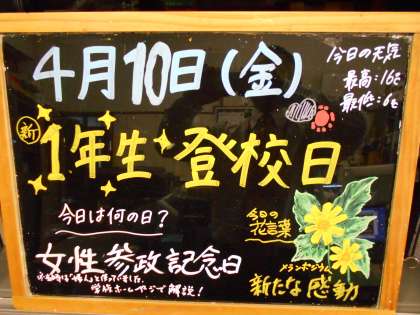 4月10日(金)
今日の天気
最高:16℃
最低:6℃
新
1年生 登校日
今日は何の日?
今日の
花言葉
女性参政記念日
学校ホームページで解説!
メランポジウム
新たな感動